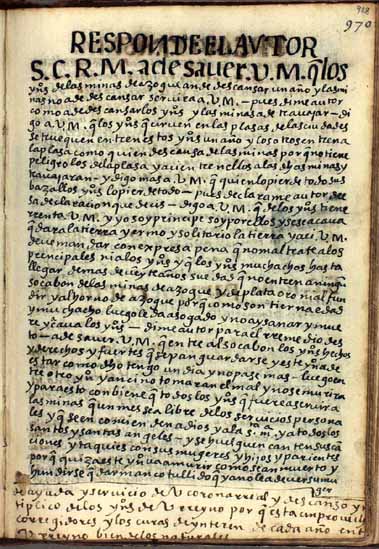 970
RESPONDE EL AVTOR
S. C. R. M. a de saver. V. M. q̃ los
yn̄s de las minas de azogue an de descansar un año y las mi
nas no a de descansar servira a. V. M. — pues dime autor
como a de descansar los yn̄s y las minas de trauajar — di
go a V. M. q̃ los yn̄s q̃ uiuen en las plasas de las ciudades
se truequen entren estos yn̄s un año y los otros entren a
la plasa como a quien descansa de las minas por q̃ no tiene
peligro los de la plasa y a uien tren ellos a las dhas minas y
trauajaran — y digo mas a. V. M. q̃ quien lo pierde todo sus
bazallos yn̄s lo pierde todo — pues declarame autor de
sa declaracion que deis — digo a V. M. q̃ de los yn̄s tiene
rrenta. V. M. y yo soy prinsipe soy por ellos y se se acaua
quedara la tierra yermo y solitario la tierra y aci V. M.
deue mandar con expresa pena q̃ no mal trate a los
prencipales ni a los yn̄s y q̃ los yn̄s muchachos hasta
llegar de mas de ueyte años su edad q̃ no entren a ningun
socabon de las minas de azogue y de plata oro ni al fun
dir y al horno de azogue por q̃ como son tierna edad
y muchacho luego le da asogado y no ay sanar y mue
re y acaua los yn̄s — dime autor para el rremedio des
to — a de sauer. V. M. q̃ entre al socabon los yn̄s hechos
y derechos y fuertes q̃ sepan guardarse y este yn̄ a de
estar como dho tengo un dia y no pase mas — luego en
tre otro yn̄ y anci no tomaran el mal y no se muriria
y para esto conbiene q̃ todos los yn̄s q̃ fuere a seruir a
las minas q̃ un mes sea libre de los seruicios persona
les y q̃ se en comienden a dios y a la s.ta m.a y a todos los
santos y santas angeles — y se huelguen canten dansan
ciones y taquies con sus mugeres y hijos y parientes
por q̃ quizas este yn̄ ua a murir como sean muerto y
hundirse q̃ dar manco tullido q̃ ya no lea de uer su mu
de ayuda y servicio de V coronarreal y descanso y
tiplico de los yn̄s de V rreyno por q̃ esta en prouill
corregidores y los curas
rreyno bien de los naturales